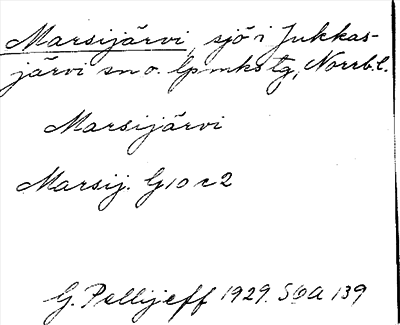 Marsijärvi, sjö i Jukkas-
järvi sn o. lpmkstg, Norrb.l.
Marsijärvi
Marsij. G10 c2
G. Pellijeff 1929. SOA 139